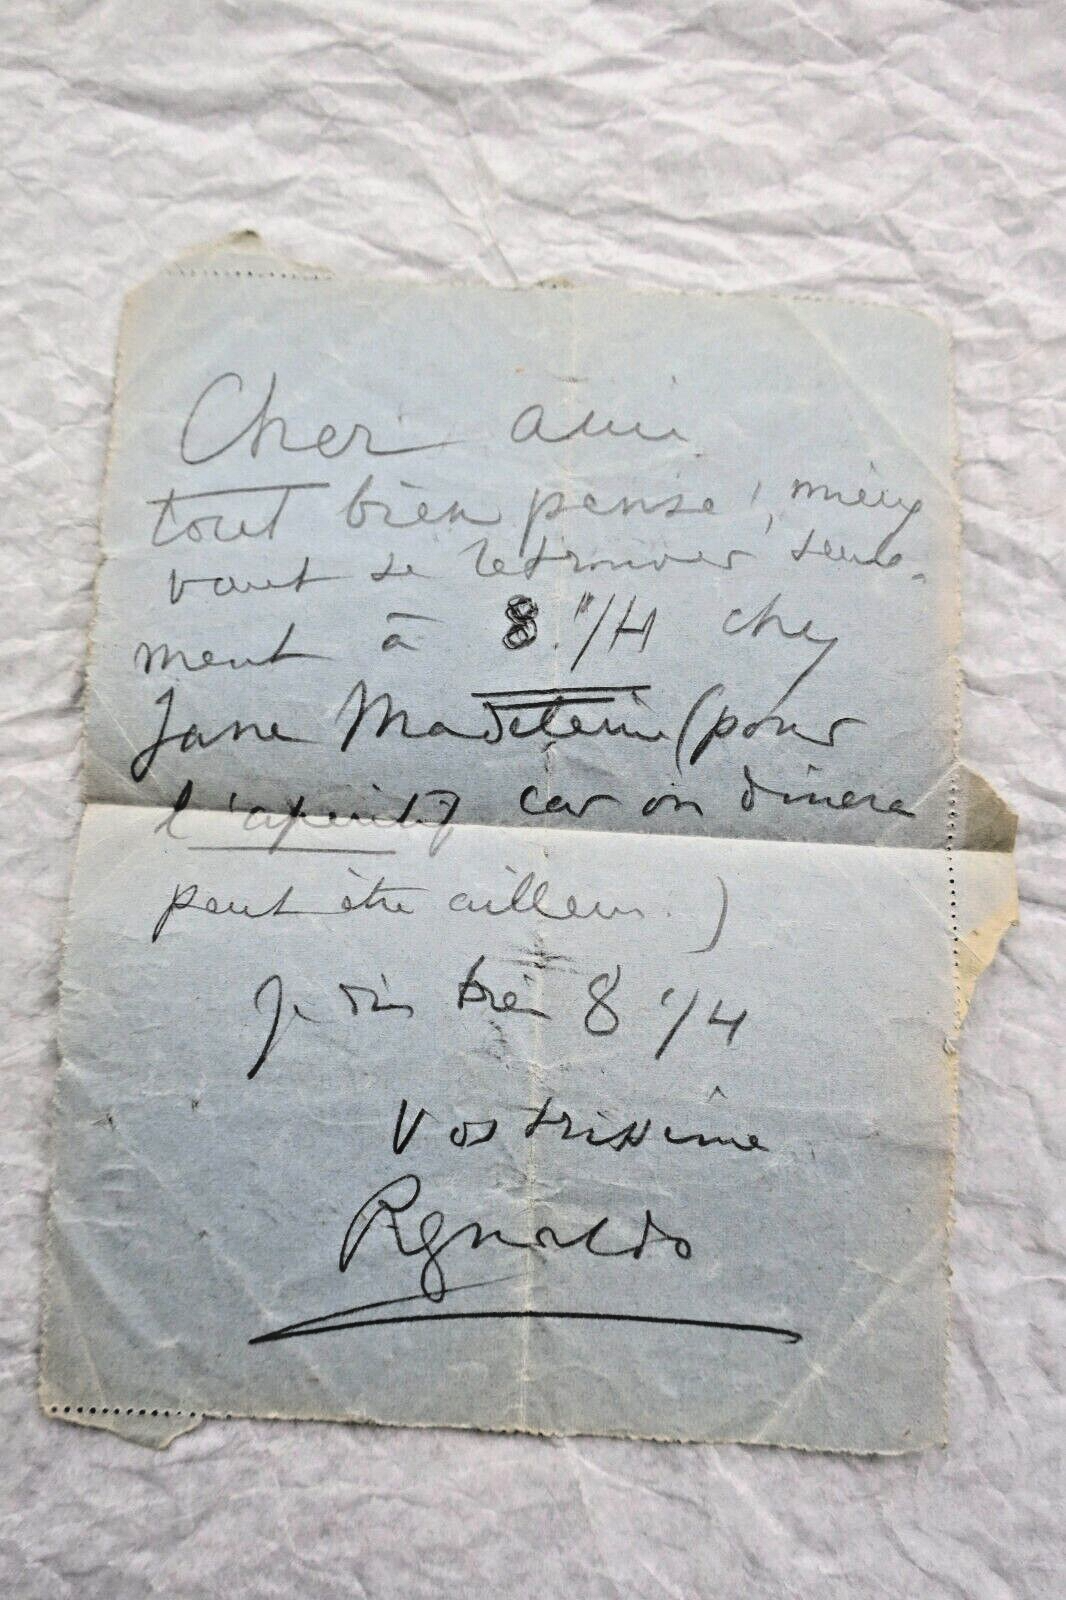 Cher ami
tout bien pensé, mieux
vaut se retrouver seule-
ment à 8. 1/4 chez
Jane Madeleine (pour
l'apéritif car on dinera
peut être ailleurs.)
Je dis bien 8 1/4
Vostrissime
Reynaldo